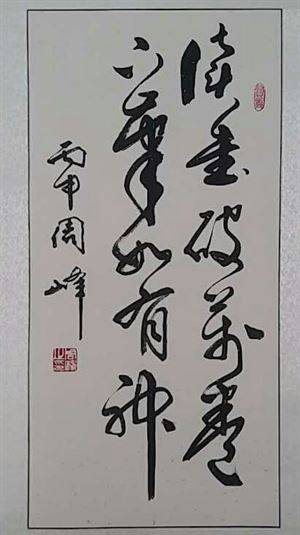 读书破万卷
下笔如有神
丙申周峰